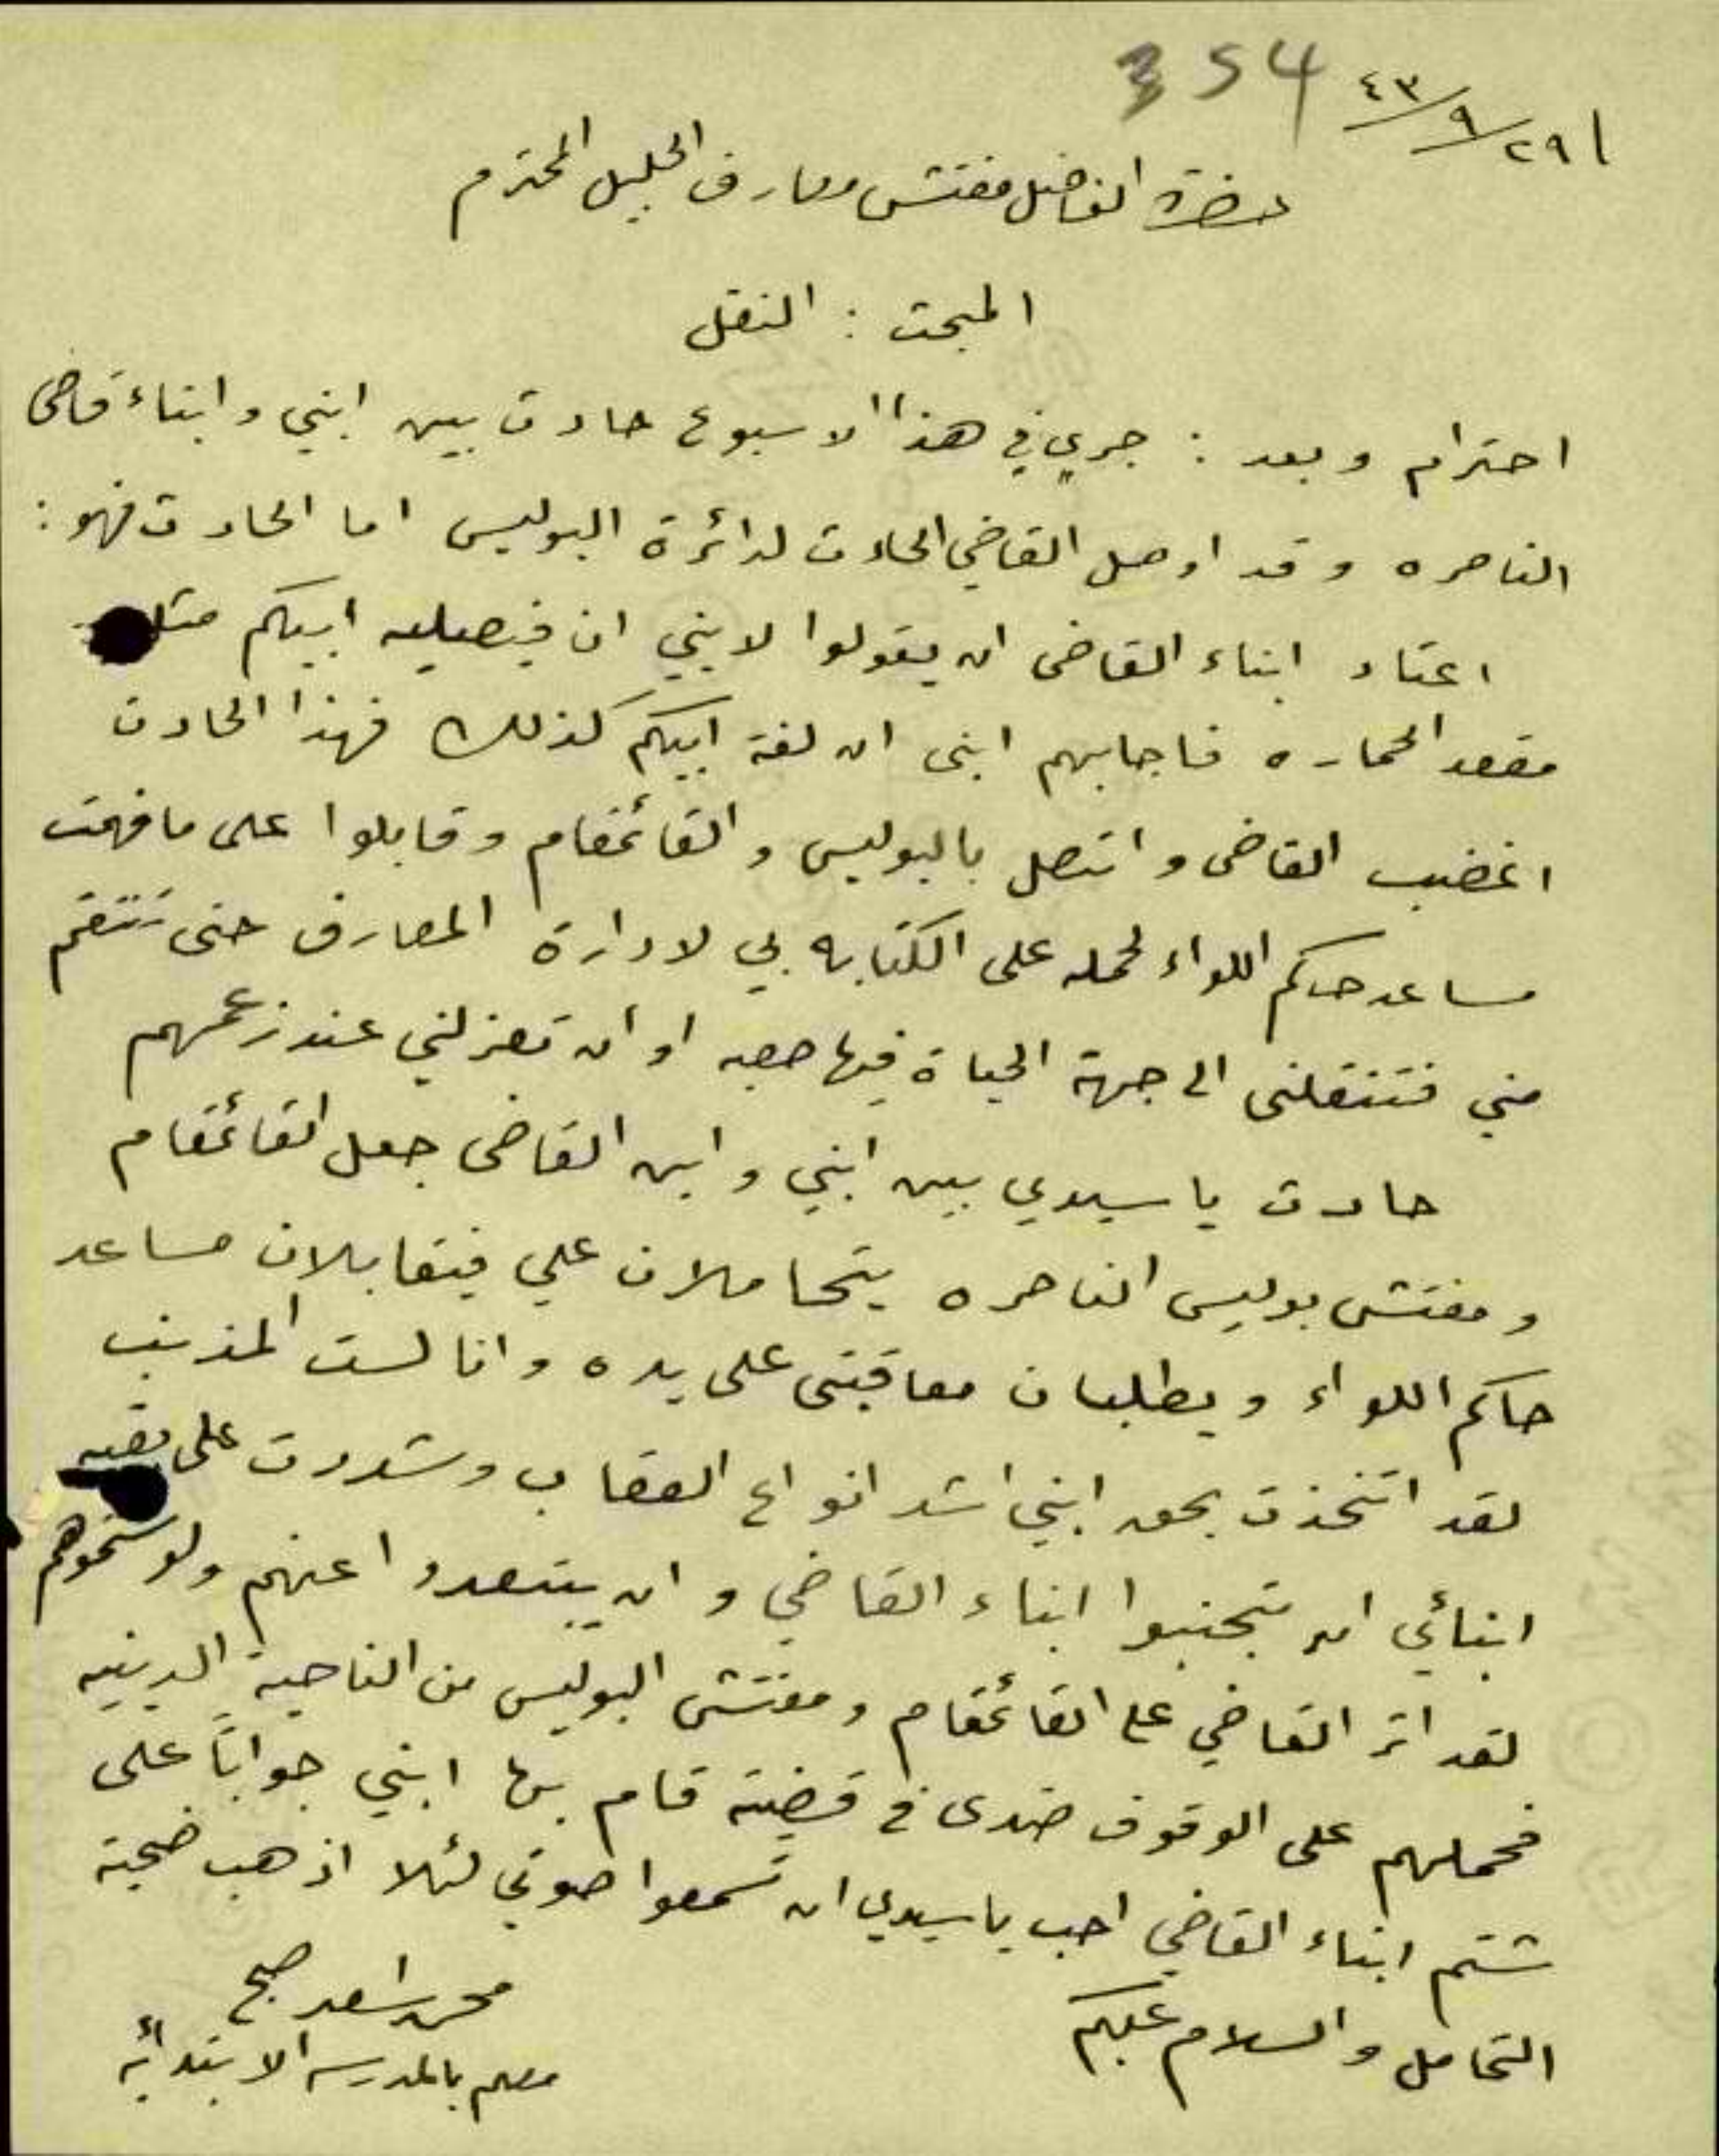 354
٢٩/٩/٤٣
حضرة الفاضل مفتش معارف الجليل المحترم
المبحث : النقل
احترام وبعد : جرى في هذا الاسبوع حادث بين ابني وابناء قاضي
الناصره وقد اوصل القاضي الحادث لدائرة البوليس اما الحادث فهو :
اعتاد ابناء القاضي ان يقولوا لابني ان فيصليه ابيكم مثل
مقعد الحماره فاجابهم ابني ان لفة ابيكم كذلك فهذا الحادث
اغضب القاضي واتصل بالبوليس والقائمقام وقابلوا على ما فهمت
مساعد حاكم اللواء لحمله على الكتابه بي لادارة المعارف حتى تنتقم
مني فتنقلني الى جهة الحياة فيها صعبه او ان تعزلني عند زعمهم
حادث يا سيدي بين ابني وابن القاضي جعل القائمقام
ومفتش بوليس الناصره يتحاملان علي فيقابلان مساعد
حاكم اللواء ويطلبان معاقبتي على يده وانا لست المذنب
لقد اتخذت بحق ابني اشد انواع العقاب وشددت على بقيه
ابنائي ان يتجنبوا ابناء القاضي وان يبتعدوا عنهم ولو شتموهم
لقد اثر القاضي على القائمقام ومفتش البوليس من الناحية الدينيه
فحملهم على الوقوف ضدي في قضية قام بها ابني جواباً على
شتم ابناء القاضي احب يا سيدي ان تسمعوا صوتي لئلا اذهب ضحية
التحامل والسلام عليكم
محمد اسعد صبح
معلم بالمدرسه الابتدائيه